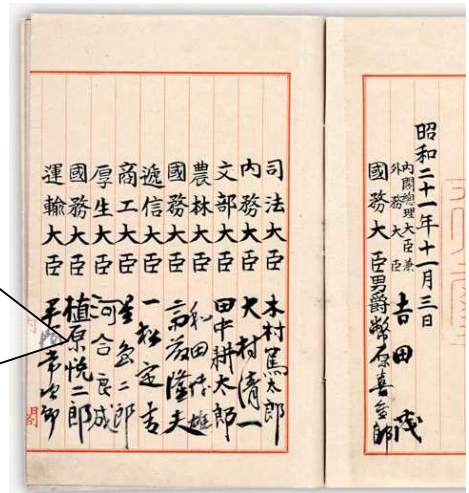 昭和二十一年十一月三日
內閣總理大臣兼
外務大臣 吉田茂
國務大臣 男爵 幣原喜重郎
司法大臣 木村篤太郎
內務大臣 大村清一
文部大臣 田中耕太郎
農林大臣 和田博雄
國務大臣 斎藤隆夫
遞信大臣 一松定吉
商工大臣 星島二郎
厚生大臣 河合良成
國務大臣 植原悦二郎
運輸大臣 平塚常次郎
內閣